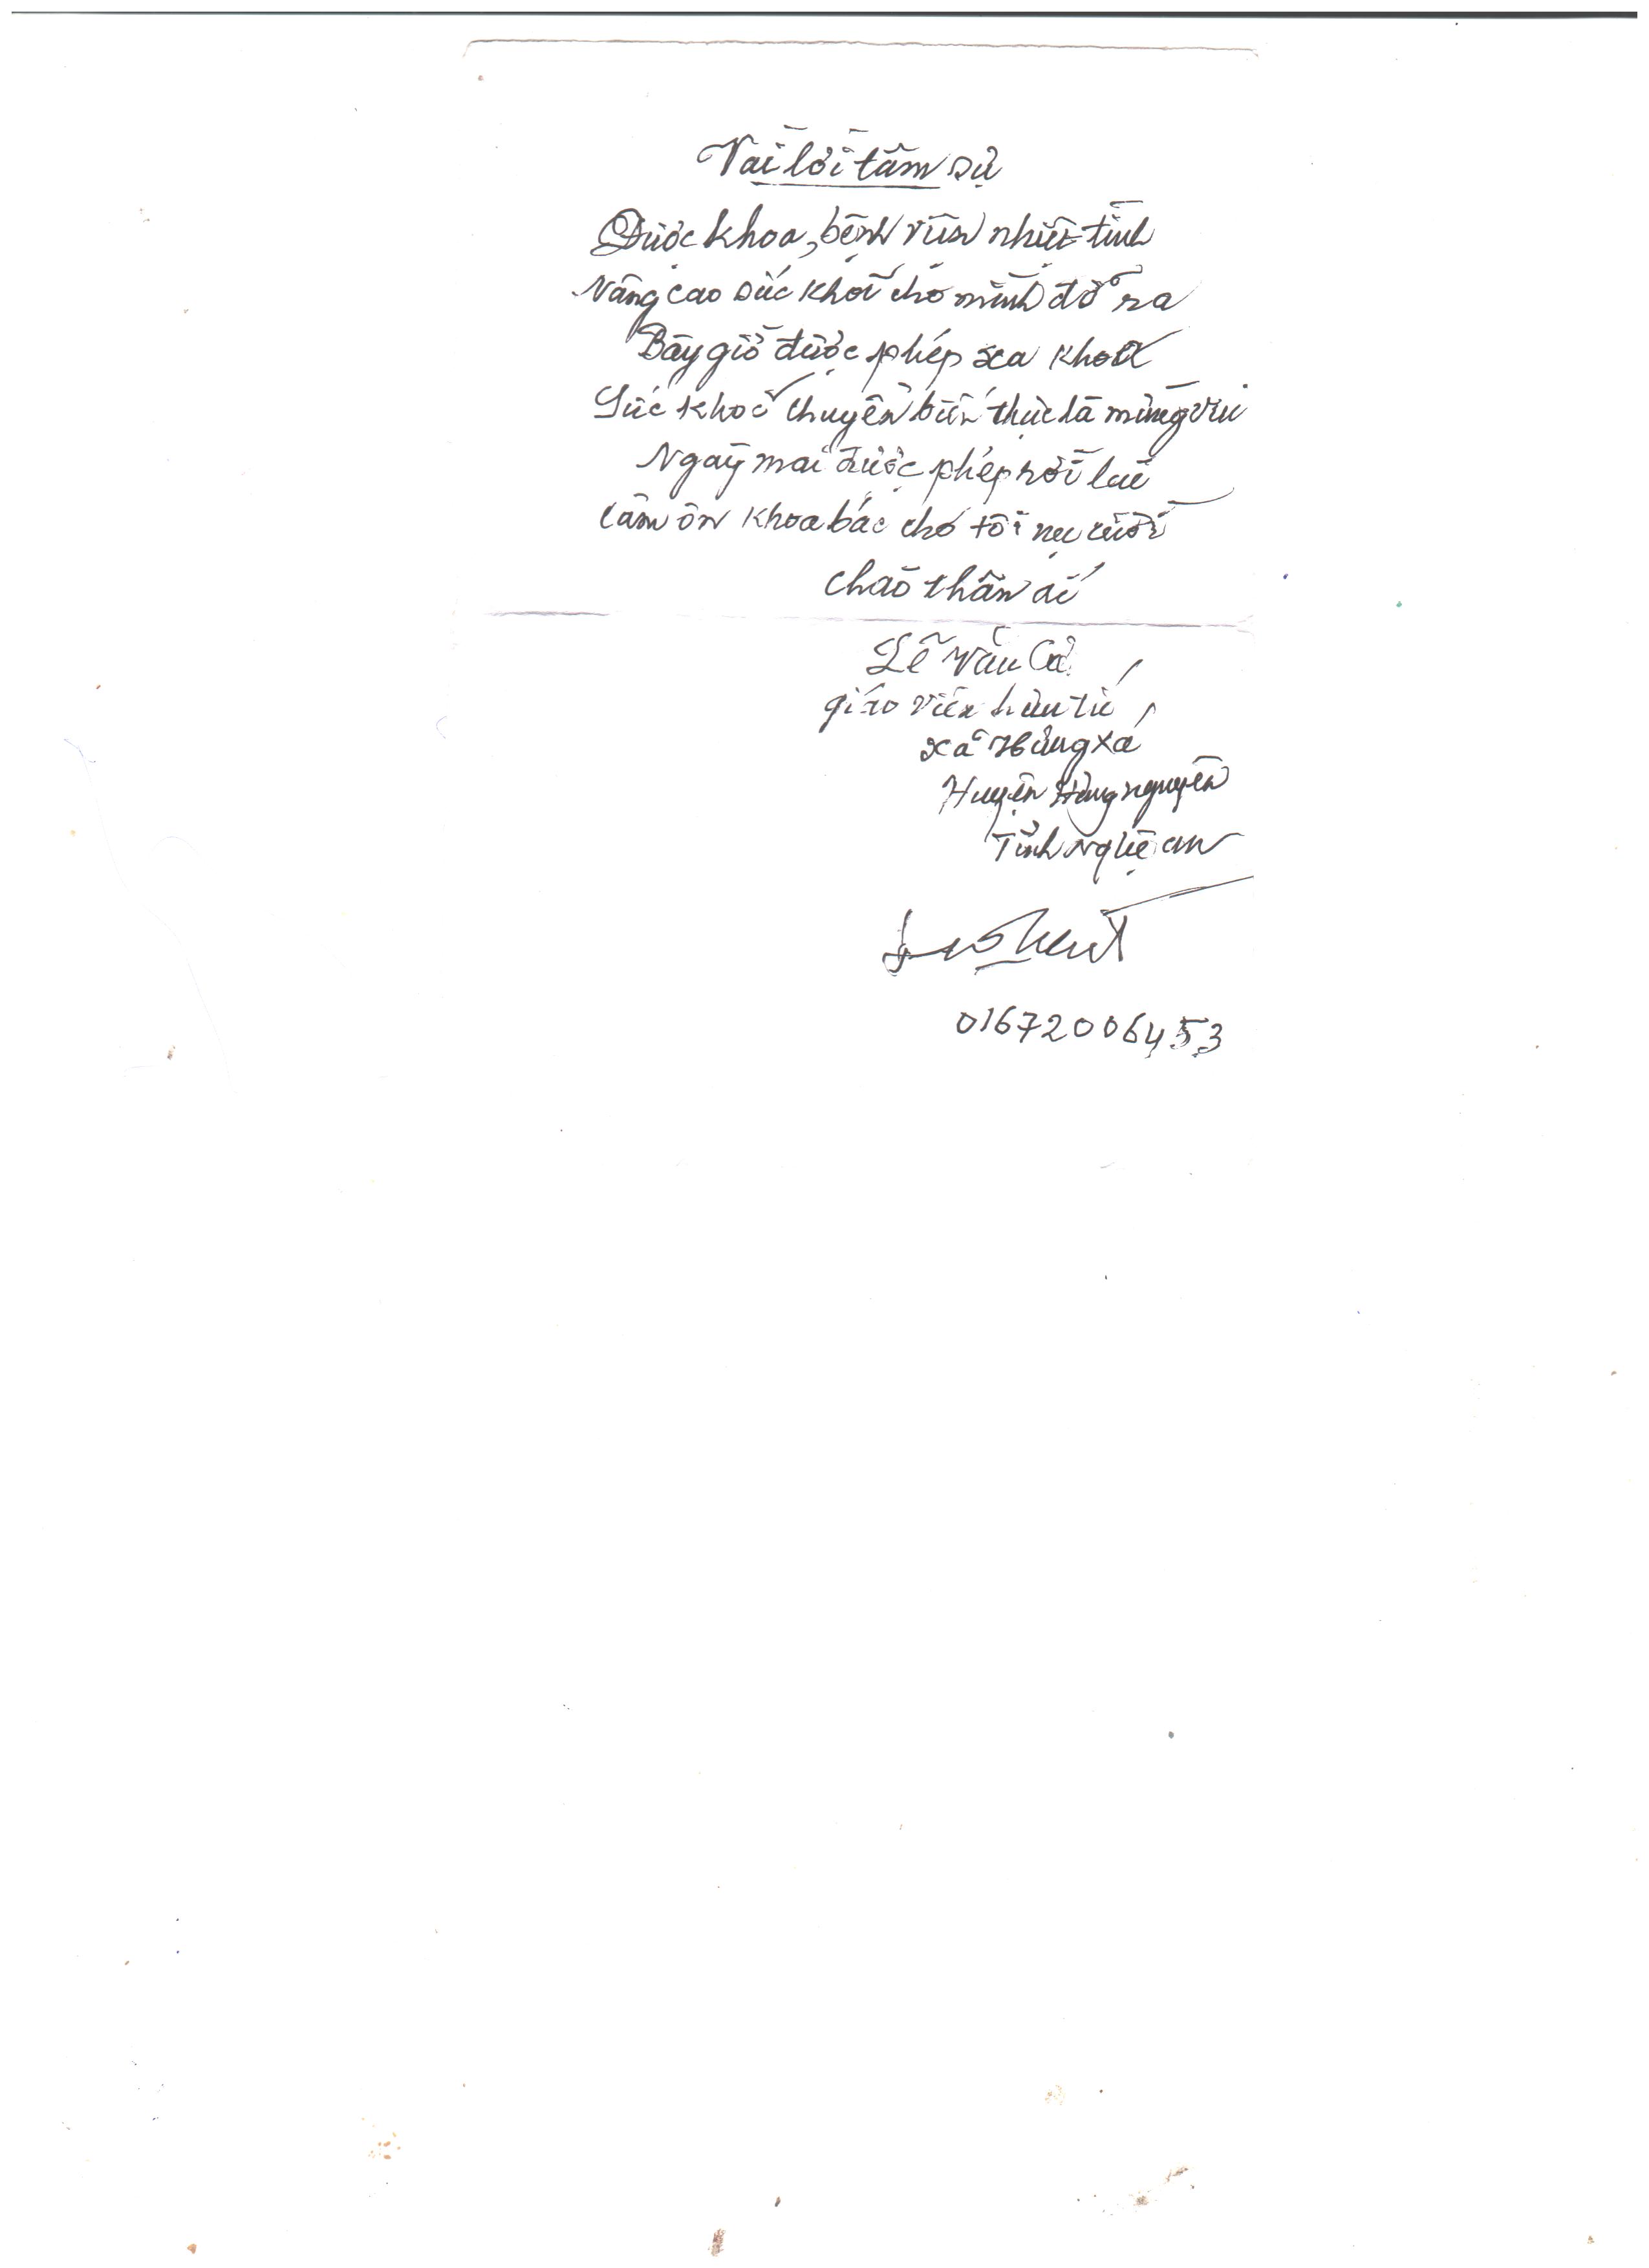 Vài lời tâm sự
Được khoa, bệnh viện nhiệt tình
Nâng cao sức khoẻ cho mình đỡ ra
Bây giờ được phép xa khoa
Sức khoẻ chuyển biến thực là mừng vui
Ngày mai được phép rời lui
Cảm ơn khoa bác cho tôi nụ cười
Chào thân ái
Lê Văn
giáo viên hưu trí
xã Hưng Xá
Huyện Hưng nguyên
Tỉnh Nghệ an
01672006453